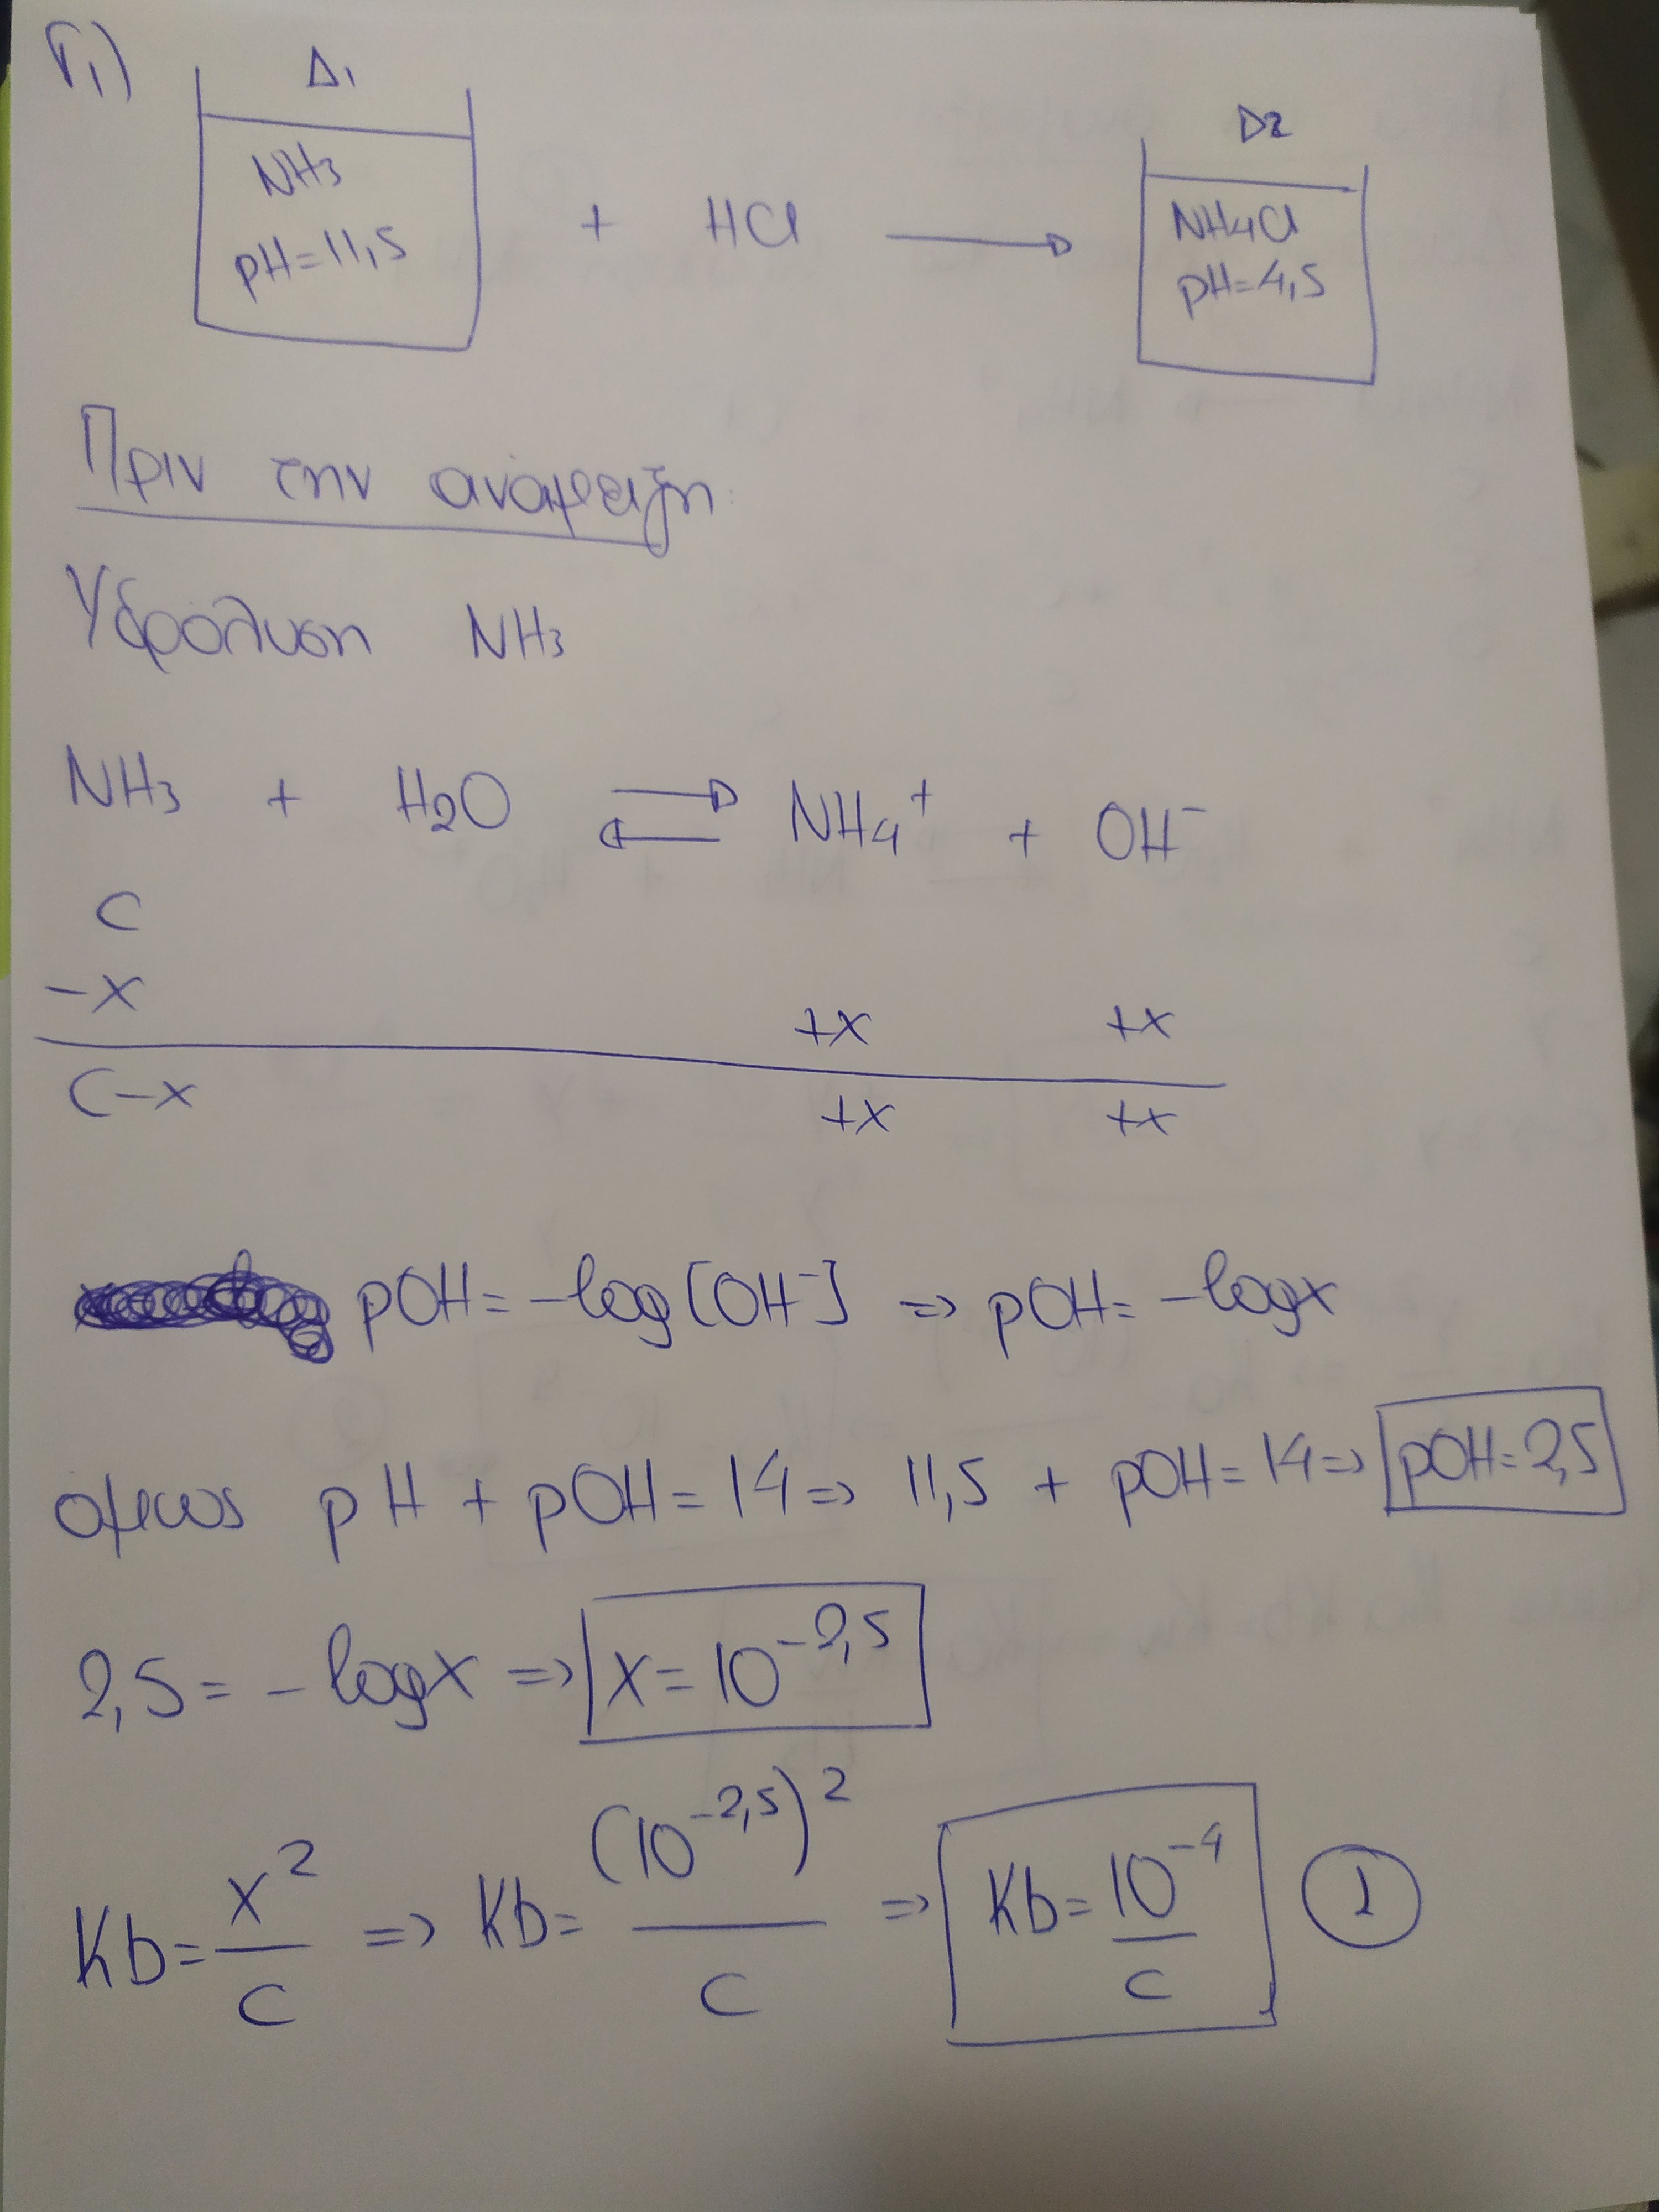 Γ1)
Δ1
Δ2
NH3
pH=11,5
+ HCl →
NH4Cl
pH=4,5
Πριν την αναμειξη:
Υδρόλυση NH3
NH3 + H2O ⇌ NH4+ + OH-
C
-x +x +x
C-x +x +x
pOH=-log[OH-] => pOH= -logx
όμως pH + pOH=14=> 11,5 + pOH=14=> pOH=2,5
2,5= -logx => x=10^-2,5
Kb= x^2/C => Kb= (10^-2,5)^2/C => Kb= 10^-4/C 1